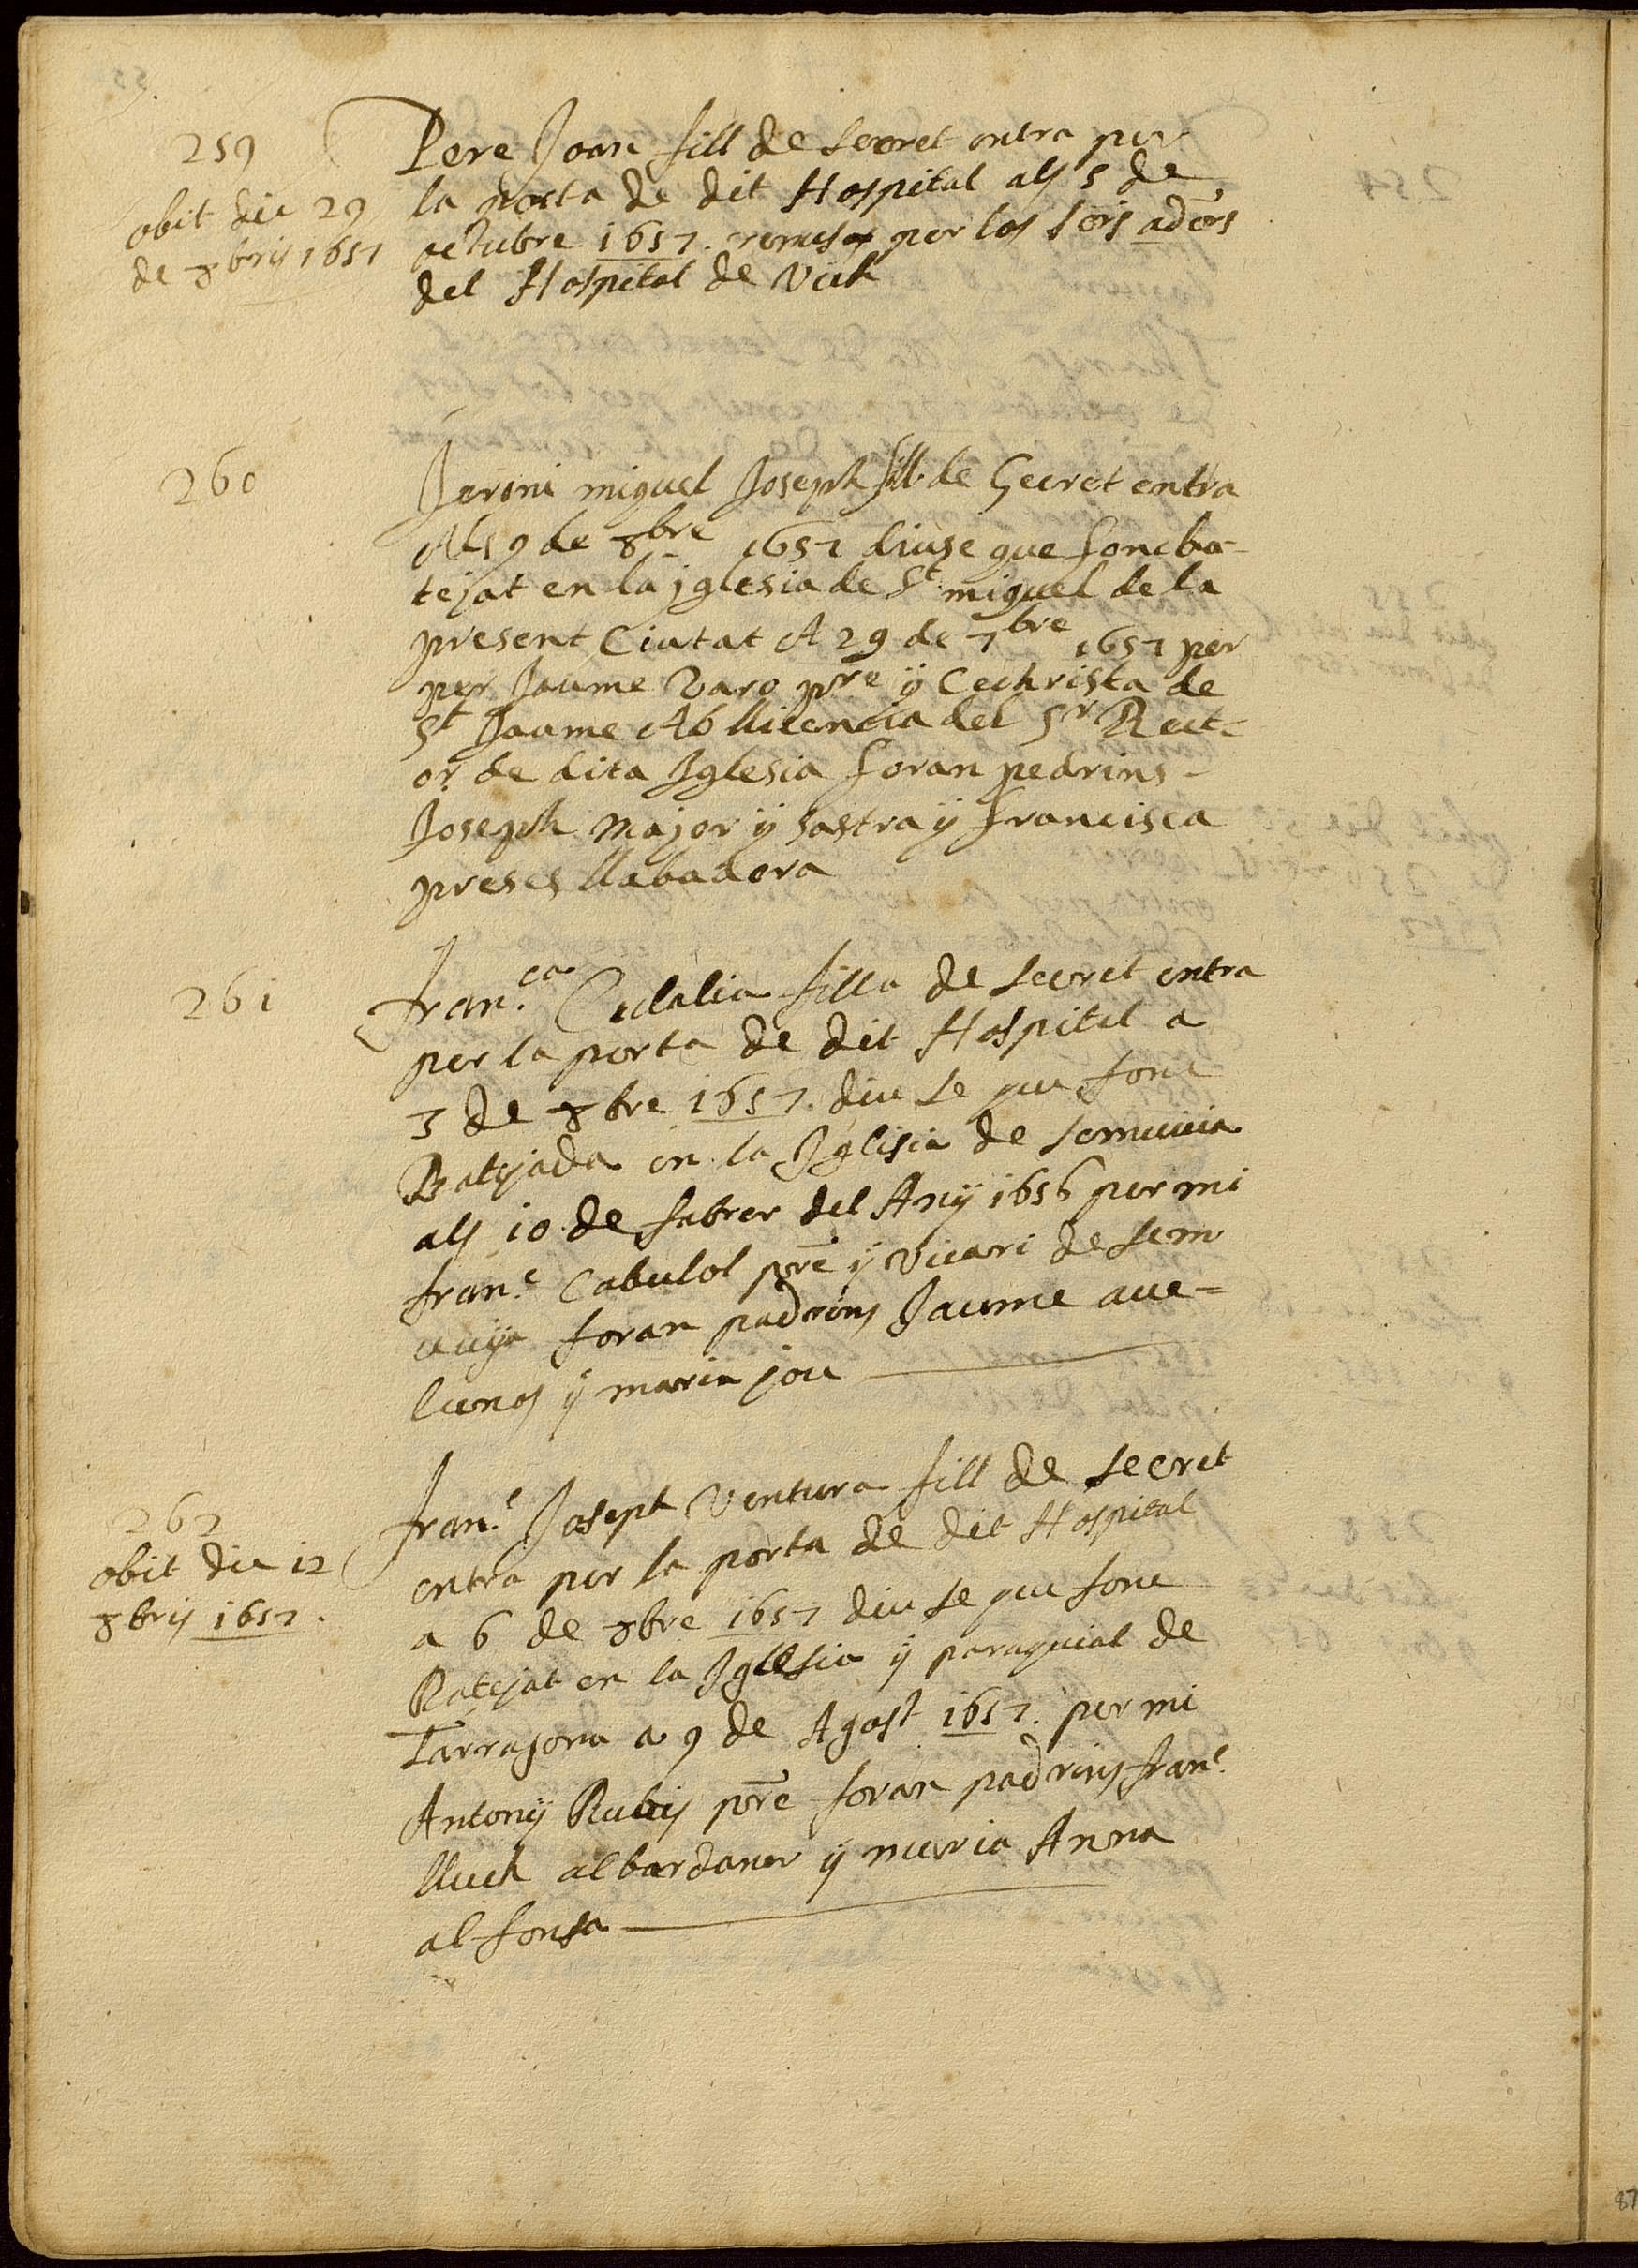 259
obit die 29
de 8bris 1657
Pere Joan fill de secret entra per
la porta de dit Hospital als 5 de
octubre 1657. remes per los sors ad̄ors
del Hospital de Vich
260
Jeroni miguel Joseph fill de Secret entra
Als 9 de 8bre 1657 diuse que fonc ba-
tejat en la jglesia de St miguel de la
present Ciutat A 29 de 7bre 1657 per
per Jaume Varo pre y Cechrista de
St Jaume Ab llicencia del Sr Rect-
or de dita Iglesia foran pedrins
Joseph Major y sastra y francisca
preses llabadora
261
fran.ca Eulalia filla de secret entra
per la porta de dit Hospital a
3 de 8bre 1657. diu se que fonc
Batejada en la Iglisia de
als 10 de fabrer del Any 1656 per mi
fran.c Cabulol pre y vicari de sem
foran padrins Jaume aue=
lunos y maria jou
262
obit die 12
8bris 1657.
fran.c Joseph Ventura fill de secret
entra per la porta de dit Hospital
a 6 de 8bre 1657 diu se que fonc
Batejat en la Iglesia y paraquial de
Tarragona a 9 de Agost 1657. per mi
Antony Rubiy pre foran padrins fran.c
lluch albardaner y maria Anna
alfonsa
87